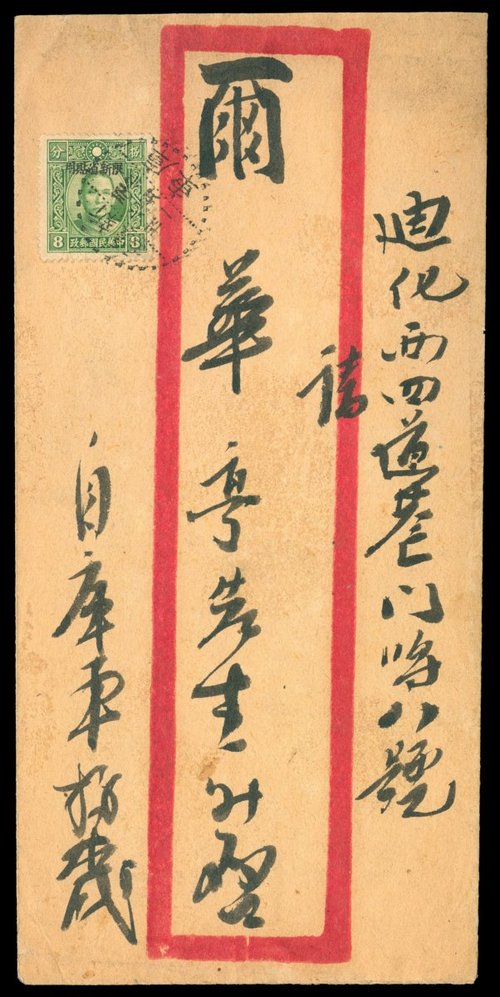 迪化西四道巷門牌八號
請
爾
華亭先生升啟
自庫車楊緘
分 捌
限新省貼用
8 中華民國郵政 8